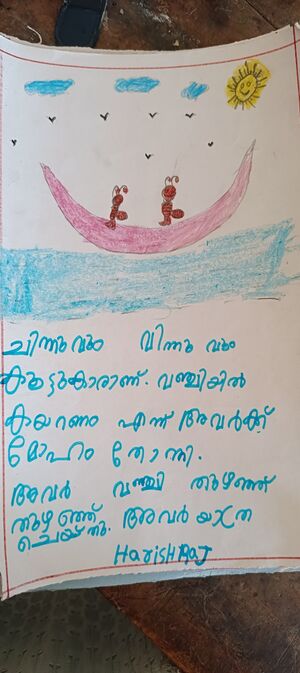 ചിന്നുവും വിന്നുവും
കൂട്ടുകാരാണ്. വഞ്ചിയിൽ
കയറണം എന്ന് അവർക്ക്
മോഹം തോന്നി.
അവർ വഞ്ചി തുഴഞ്ഞ്
തുഴഞ്ഞ് അവർ യാത്ര
ചെയ്തു.
HARISH RAJ